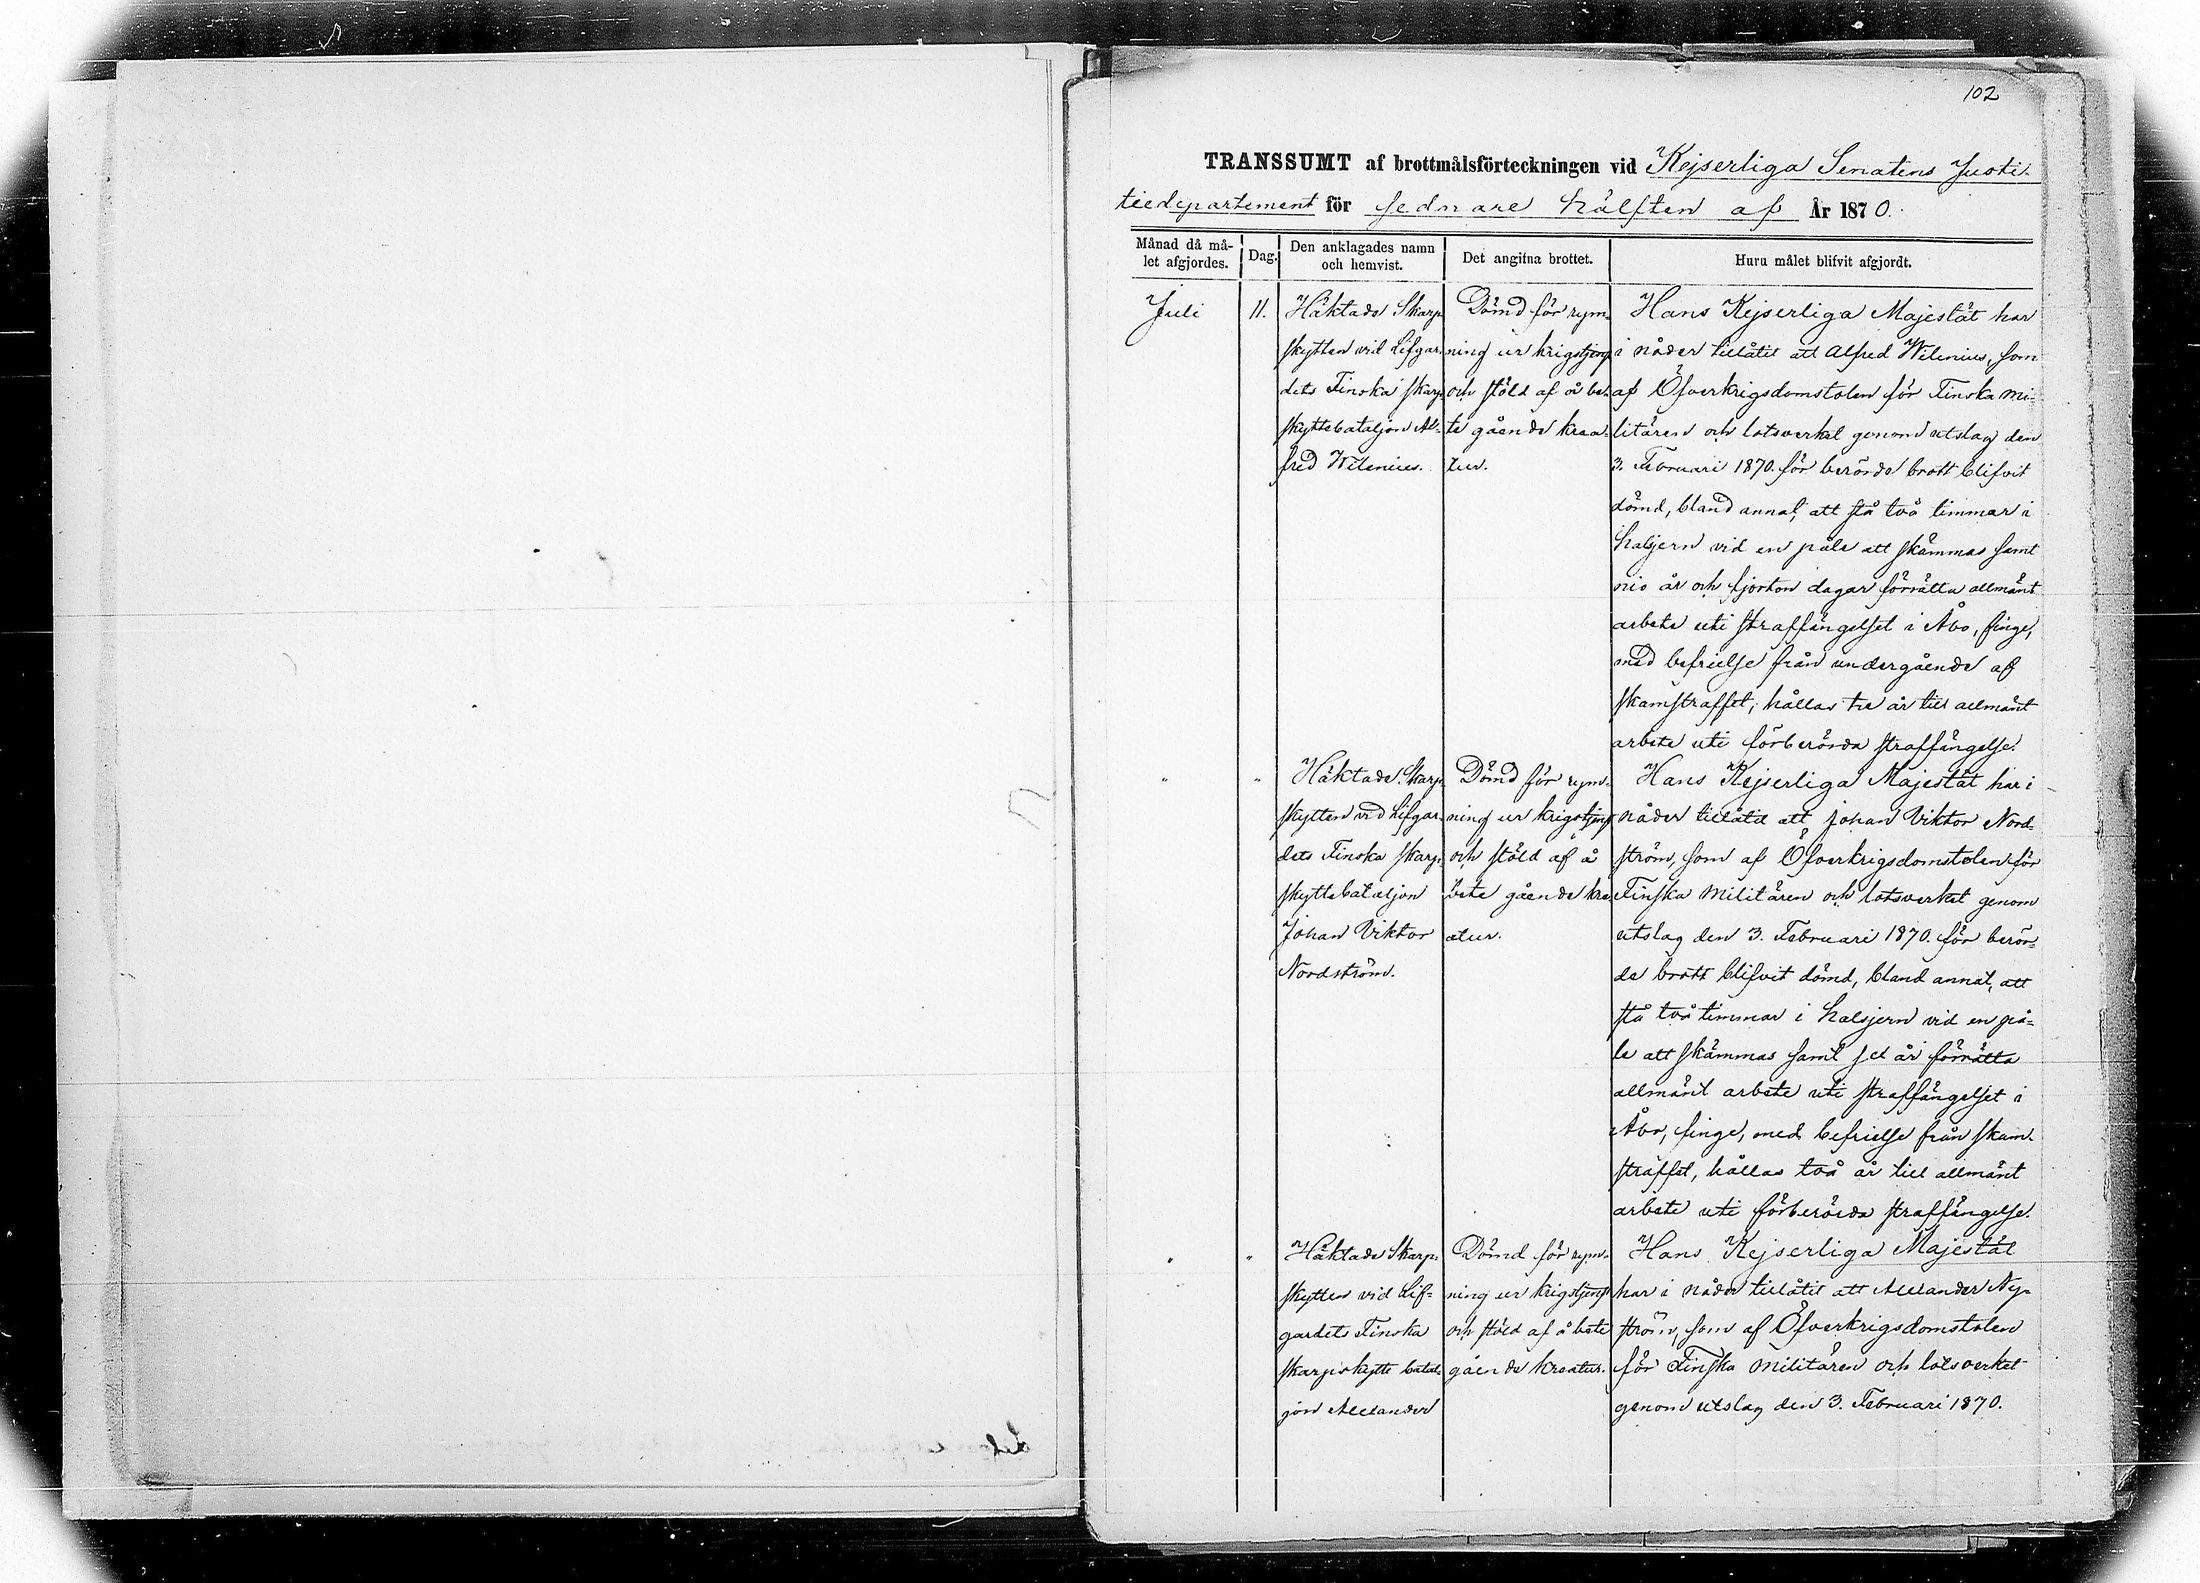 102
TRANSSUMT af brottmålsförteckningen vid Kejserliga Senatens Justi-
tiedepartement för sednare hälften af År 1870.
Månad då må-
let afgjordes.
Dag.
Den anklagades namn
och hemvist.
Det angifna brottet.
Huru målet blifvit afgjordt.
Juli
11.
Häktade Skarp-
skytten vid Lifgar-
dets Finska skarp-
skyttebataljon Al-
fred Wilenius.
Dömd för rym-
ning ur krigstjenst
och stöld af å be-
te gående krea-
tur.
Hans Kejserliga Majestät har
i nåder tillåtit att Alfred Wilenius, som
af Öfverkrigsdomstolen för Finska mi-
litären och lotsverket genom utslag den
3. Februari 1870. för berörde brott blifvit
dömd, bland annat, att stå två timmar i
halsjern vid en påle att skämmas samt
nio år och fjorton dagar förrätta allmänt
arbete uti straffängelset i Åbo, finge,
med befrielse från undergående af
skamstraffet, hållas tre år till allmänt
arbete uti förberörda straffängelse.
" "
Häktade Skarp-
skytten vid Lifgar-
dets Finska skarp-
skyttebataljon
Johan Viktor
Nordström.
Dömd för rym-
ning ur krigstjenst
och stöld af å
bete gående kre-
atur.
Hans Kejserliga Majestät har i
nåder tillåtit att Johan Viktor Nord-
ström, som af Öfverkrigsdomstolen för
Finska militären och lotsverket genom
utslag den 3. Februari 1870. för berör-
de brott blifvit dömd, bland annat, att
stå två timmar i halsjern vid en på-
le att skämmas samt sex år förrätta
allmänt arbete uti straffängelset i
Åbo, finge, med befrielse från skam-
straffet, hållas två år till allmänt
arbete uti förberörda straffängelse.
" "
Häktade Skarp-
skytten vid Lif-
gardets Finska
skarpskytte batal-
jon Alexander
Dömd för rym-
ning ur krigstjenst
och stöld af å bete
gående kreatur.
Hans Kejserliga Majestät
har i nåder tillåtit att Alexander Ny-
ström, som af Öfverkrigsdomstolen
för Finska militären och lotsverket
genom utslag den 3. Februari 1870.